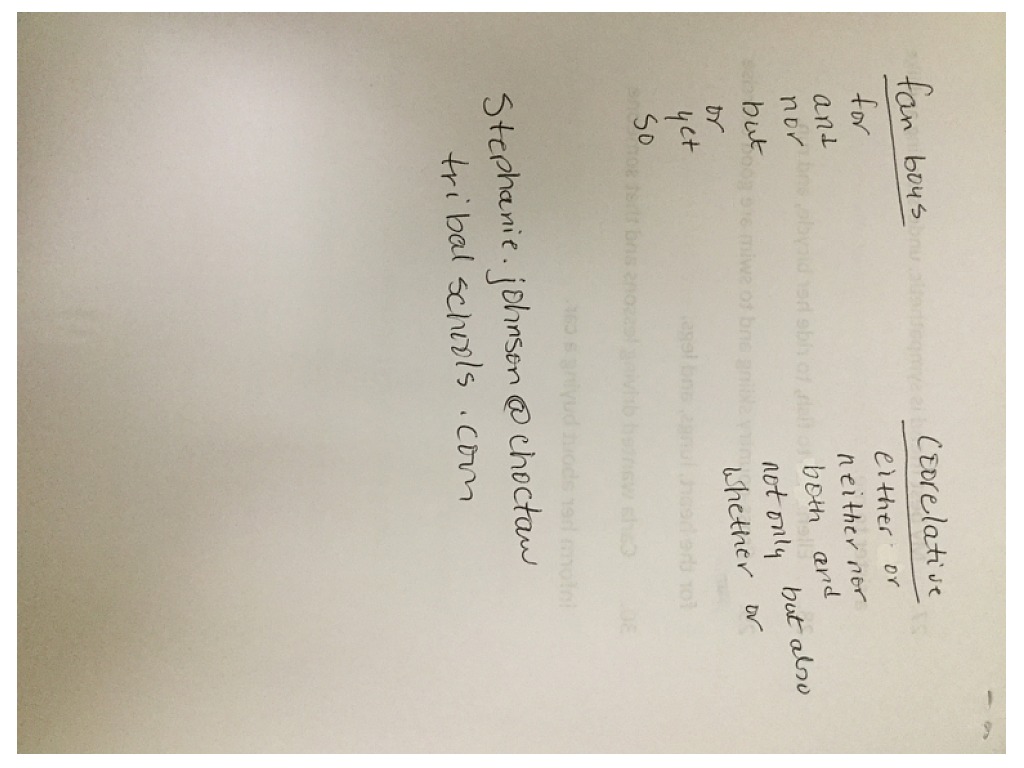 fan boys
for
and
nor
but
or
yet
so
Coorelative
either or
neither nor
both and
not only but also
whether or
Stephanie.johnson@choctaw
tribalschools.com